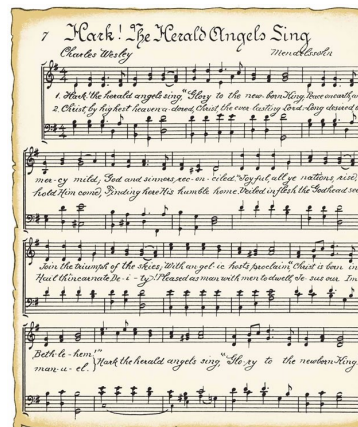 7 Hark! The Herald Angels Sing
Charles Wesley Mendelssohn
1. Hark! the herald angels sing, "Glory to the new-born King, Peace on earth, a
2. Christ, by highest heaven a-dored, Christ, the ever lasting Lord. Long desired
mer-cy mild, God and sinners rec-on-ciled." Joyful, all ye nations, rise,
hold Him come, Finding here His humble home. Veiled in flesh the Godhead see
Join the triumph of the skies; With an-gel-ic hosts proclaim, "Christ is born in
Hail th'incarnate De-i-ty! Pleased as man with men to dwell, Je-sus our Im
Beth-le-hem!"
man-u-el. } Hark the herald angels sing, "Glo-ry to the newborn King.